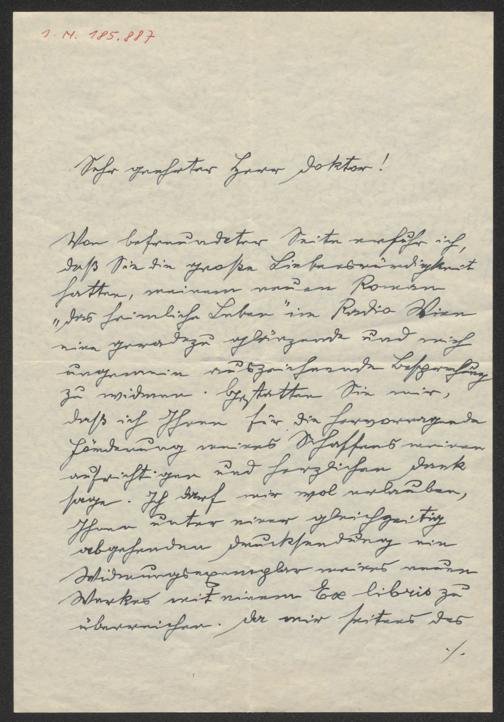 1. N. 185.887
Sehr geehrter Herr Doktor!
Von befreundeter Seite erfuhr ich,
daß Sie die große Liebenswürdigkeit
hatten, meinem neuen Roman
„Das heimliche Leben" im Radio Wien
eine geradezu glänzende und mich
ungemein auszeichnende Besprechung
zu widmen. Gestatten Sie mir,
daß ich Ihnen für die hervorragende
Förderung meines Schaffens meinen
aufrichtigen und herzlichen Dank
sage. Ich darf mir wol erlauben,
Ihnen unter einer gleichzeitig
abgehenden Drucksendung ein
Widmungsexemplar meines neuen
Werkes mit einem Ex libris zu
überreichen. Da mir seitens des
./.